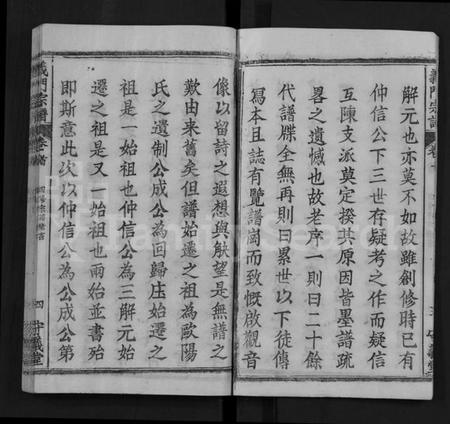 解元也亦莫不如故雖創修時已有
仲信公下三世存疑考之作而疑信
互陳支派莫定揆其原因皆墨譜疏
畧之遺憾也故老序一則曰二十餘
代譜牒全無再則曰累世以下徒傳
寫本且誌有覽譜岡而致慨啟觀音
像以留詩之遐想與觖望是無譜之
歎由來舊矣但譜始遷之祖為歐陽
氏之遺制公成公為回歸庄始遷之
祖是一始祖也仲信公為三解元始
遷之祖是又一始祖也兩始並書殆
即斯意此次以仲信公為公成公第
義門宗譜
卷首
四
義門宗譜